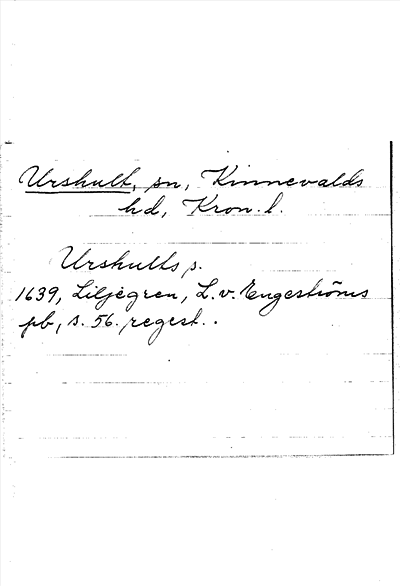 Urshult, sn, Kinnevalds
hd, Kron. l.
Urshults s.
1639, Liljegren, L. v. Engeströms
pb, s. 56. regest..